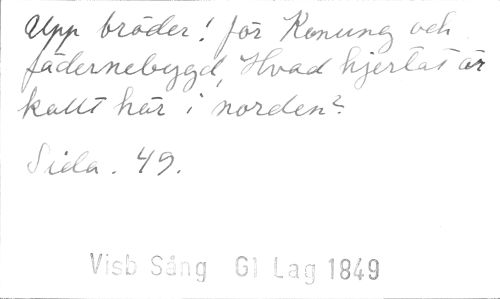 Upp bröder! för Konung och
fädernebygd, Hvad hjertat är
kallt här i norden?
Sida. 49.
Visb Sång Gl Lag 1849